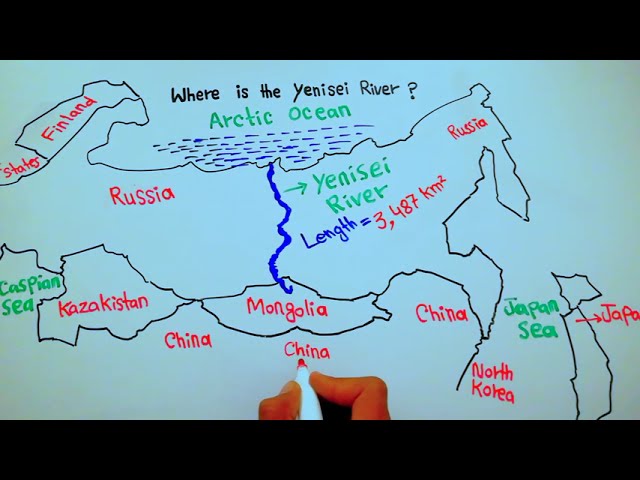 Where is the Yenisei River?
Arctic Ocean
Finland
States
Russia
Russia
Yenisei
River
Length = 3,487 Km²
Caspian
Sea
Kazakistan
Mongolia
China
China
China
Japan
Sea
Japa
North
Korea